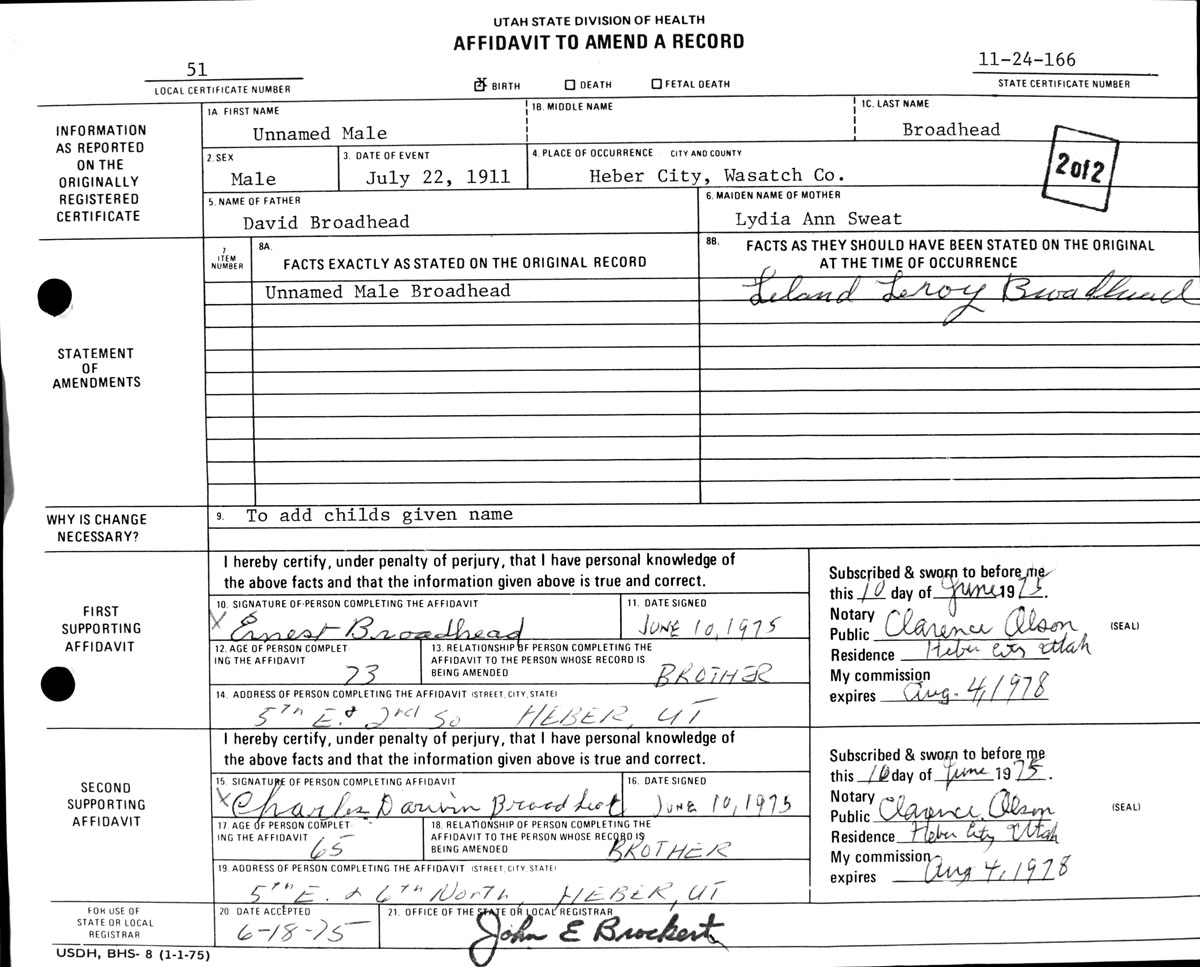 UTAH STATE DIVISION OF HEALTH
AFFIDAVIT TO AMEND A RECORD
51
LOCAL CERTIFICATE NUMBER
X BIRTH DEATH FETAL DEATH
11-24-166
STATE CERTIFICATE NUMBER
INFORMATION AS REPORTED ON THE ORIGINALLY REGISTERED CERTIFICATE
1A. FIRST NAME 1B. MIDDLE NAME 1C. LAST NAME
Unnamed Male Broadhead
2. SEX 3. DATE OF EVENT 4. PLACE OF OCCURRENCE CITY AND COUNTY
Male July 22, 1911 Heber City, Wasatch Co.
2 of 2
5. NAME OF FATHER 6. MAIDEN NAME OF MOTHER
David Broadhead Lydia Ann Sweat
STATEMENT OF AMENDMENTS
7. ITEM NUMBER
8A. FACTS EXACTLY AS STATED ON THE ORIGINAL RECORD
8B. FACTS AS THEY SHOULD HAVE BEEN STATED ON THE ORIGINAL
AT THE TIME OF OCCURRENCE
Unnamed Male Broadhead Leland Leroy Broadhead
WHY IS CHANGE NECESSARY?
9. To add childs given name
FIRST SUPPORTING AFFIDAVIT
I hereby certify, under penalty of perjury, that I have personal knowledge of
the above facts and that the information given above is true and correct.
10. SIGNATURE OF PERSON COMPLETING THE AFFIDAVIT 11. DATE SIGNED
X Ernest Broadhead JUNE 10, 1975
12. AGE OF PERSON COMPLETING THE AFFIDAVIT 73
13. RELATIONSHIP OF PERSON COMPLETING THE
AFFIDAVIT TO THE PERSON WHOSE RECORD IS
BEING AMENDED BROTHER
14. ADDRESS OF PERSON COMPLETING THE AFFIDAVIT (STREET, CITY, STATE)
5TH E. & 2nd So HEBER, UT
Subscribed & sworn to before me
this 10 day of June 1975.
Notary
Public Clarence Olson (SEAL)
Residence Heber City Utah
My commission
expires Aug. 4, 1978
SECOND SUPPORTING AFFIDAVIT
I hereby certify, under penalty of perjury, that I have personal knowledge of
the above facts and that the information given above is true and correct.
15. SIGNATURE OF PERSON COMPLETING AFFIDAVIT 16. DATE SIGNED
X Charles Darwin Broadhead JUNE 10, 1975
17. AGE OF PERSON COMPLETING THE AFFIDAVIT 65
18. RELATIONSHIP OF PERSON COMPLETING THE
AFFIDAVIT TO THE PERSON WHOSE RECORD IS
BEING AMENDED BROTHER
19. ADDRESS OF PERSON COMPLETING THE AFFIDAVIT (STREET, CITY, STATE)
5TH E. & 6TH North, HEBER, UT
Subscribed & sworn to before me
this 10 day of June 1975.
Notary
Public Clarence Olson (SEAL)
Residence Heber City Utah
My commission
expires Aug 4, 1978
FOR USE OF STATE OR LOCAL REGISTRAR
20. DATE ACCEPTED 21. OFFICE OF THE STATE OR LOCAL REGISTRAR
6-18-75 John E Brockert
USDH, BHS- 8 (1-1-75)